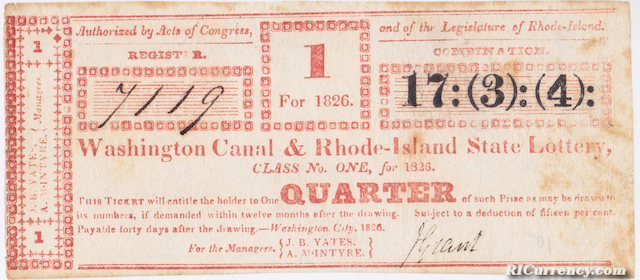 1
J. B. YATES, } Managers.
A. McINTYRE. }
1
Authorized by Acts of Congress, and of the Legislature of Rhode-Island.
REGISTER. COMBINATION.
7119
1
For 1826.
17:(3):(4):
Washington Canal & Rhode-Island State Lottery,
CLASS No. ONE, for 1826.
THIS TICKET will entitle the holder to One QUARTER of such Prize as may be drawn to
its numbers, if demanded within twelve months after the drawing. Subject to a deduction of fifteen per cent.
Payable forty days after the drawing.—Washington City, 1826.
For the Managers. { J. B. YATES.
A. McINTYRE.
J Grant
RICurrency.com